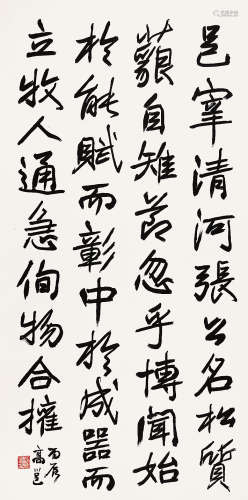 邑宰清河張公名松質
藐自雉节忽乎博聞始
於能賦而彰中於成器而
立牧人通急徇物合擁
丙辰
高邕